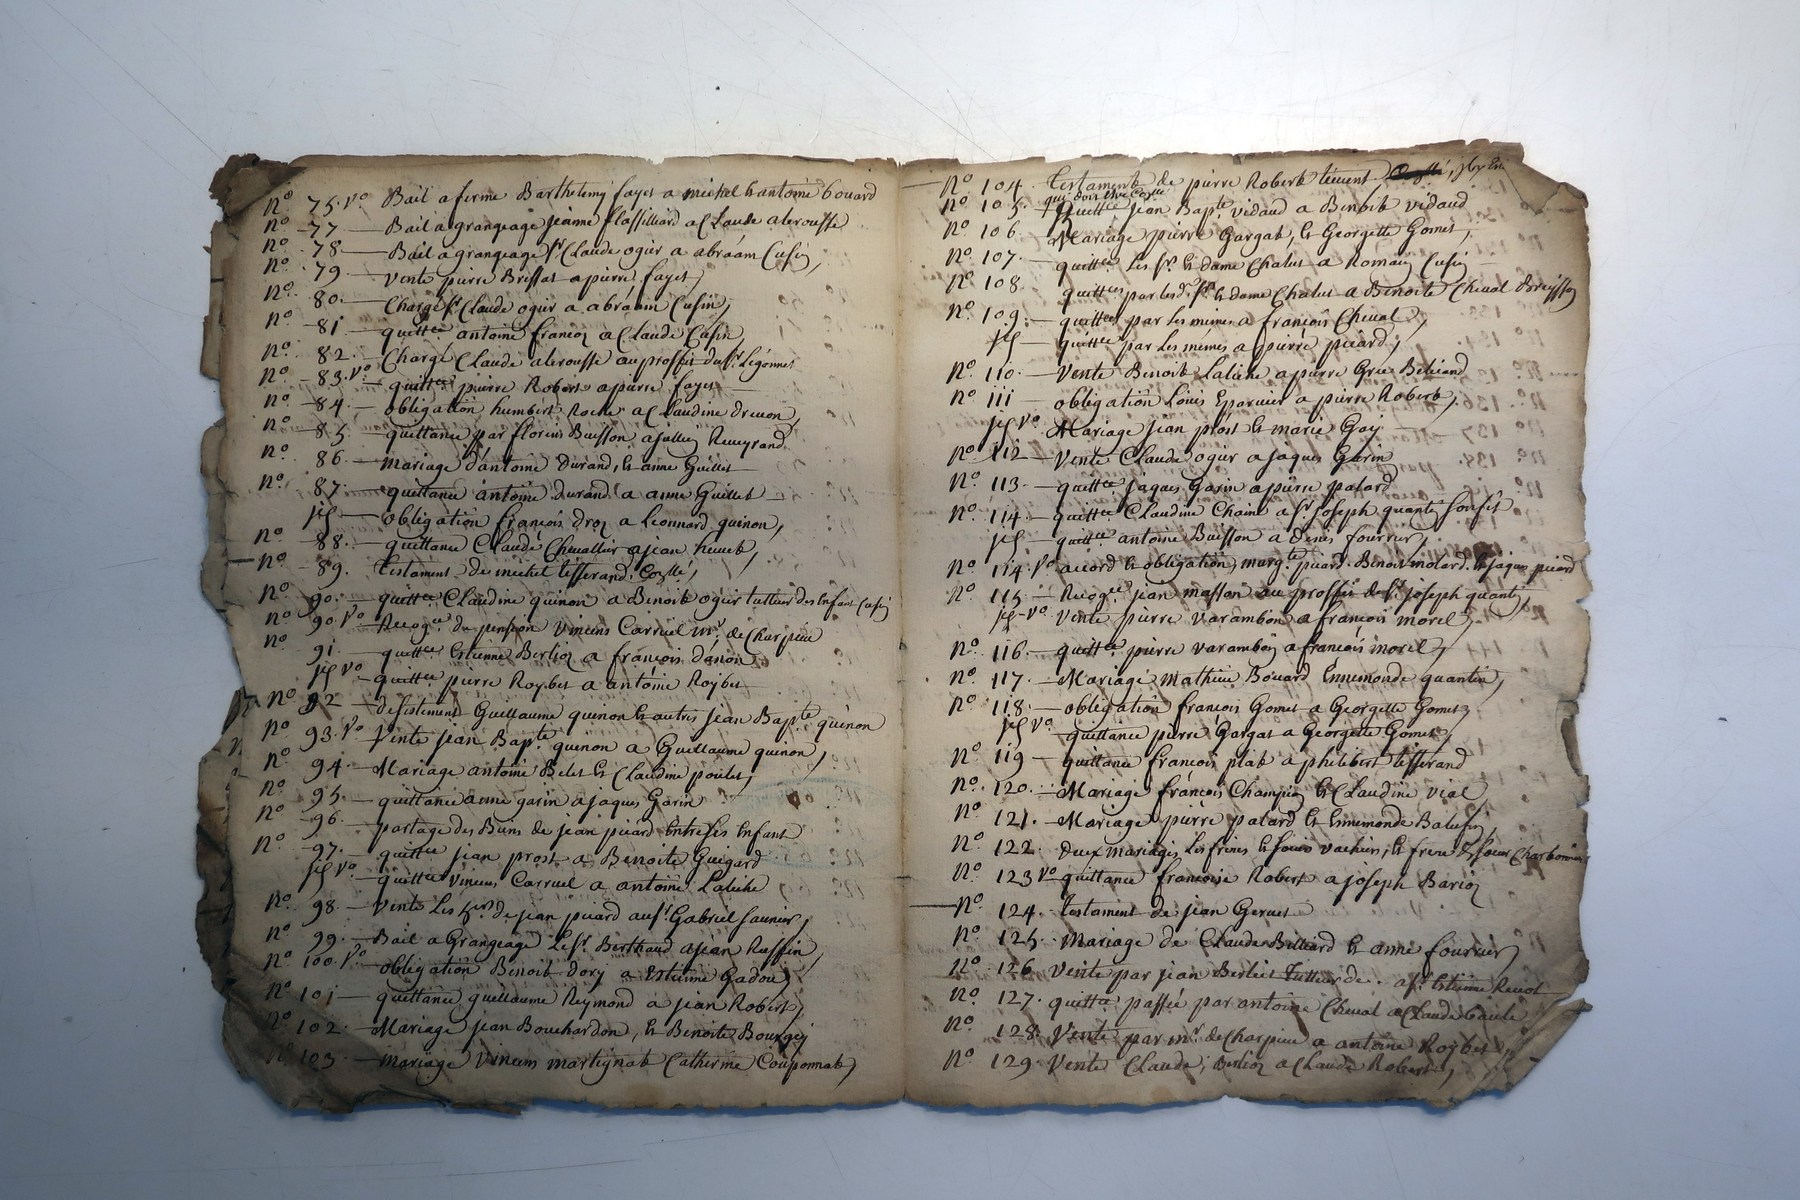 No 75. Vo Bail a ferme Barthelemy fayet a michel & antoine bouard
No 77 — Bail a grangeage jeanne flassilliard a Claude alerousse
No 78 — Bail a grangeage Sr Claude ogier a abraám Cusin,
No 79 — Vente pierre Brissat a pierre fayet,
No 80. — Charge Sr Claude ogier a abraám Cusin,
No 81 — quittce antoine francoz a Claude Cusin,
No 82. — Charge Claude alerousse au proffit du Sr Legonnet
No 83. Vo — quittce pierre Robert a pierre fayet —
No 84. — obligation humbert Roche a Claudine drevon,
No 85. — quittance par florent Buisson a jullien Reveyrand
No 86. — mariage d'antoine durand, & anne Guillet —
No 87. — quittance antoine durand a anne Guillet —
— obligation françois droz a Leonnard quinon,
No 88. — quittance Claude Chevallier a jean heuet,
No 89. testament de michel tisserand. Coṯṯé,
No 90. — quittce Claudine quinon a Benoit ogier tutteur des Enfans Cusin
No 90. Vo — Recogce de pension Vincens Carruel mr. de Charpene
No 91. — quittce Estienne Berlioz a françois danon
Vo — quittce pierre Roybet a antoine Roybet
No 92 — desistement Guillaume quinon & autres jean Bapte quinon
No 93. Vo Vente jean Bapte quinon a Guillaume quinon,
No 94. — Mariage antoine Belet & Claudine poulet,
No 95. — quittance anne garin a jaques Garin
No 96. — partage des Biens de jean picard Entre ses Enfant
No 97. — quittce jean prost a Benoite Guigard
Vo — quittce Vincens Carruel a antoine Laliche
No 98. — Vente Les de jean picard au Sr Gabriel saunier,
No 99. — Bail a Grangeage Le Sr. Berthaud a jean Ruffin,
No 100. Vo — obligation Benoit dory a Estienne Gadou,
No 101 — quittance guillaume Reymond a jean Robert,
No 102. — Mariage jean Bouchardon, & Benoite Bourgey
No 103 — mariage Vincens martignat Catherine Couponnat,
No 104. testament de pierre Robert tenent
qui doit être
No 105. — quittce jean Bapte vidaud a Benoit vidaud
No 106 — Mariage pierre Gargat, & Georgette Gomet,
No 107. — quittce Les Sr. & dame Chalut a Romain Cusin
No 108. quittces par lesd. Srs & dame Chalut a Benoite Cheval Breysson
No 109. — quittces par Les mémes a françois Cheval,
— quittce par Les mémes a pierre picard,
No 110. — Vente Benoit Laliche a pierre Beliand
No 111 — obligation Louis Eparvier a pierre Robert,
Vo Mariage jean prost & marie Gay —
No 112 — Vente Claude ogier a jaques Garin
No 113. — quittce jaques Garin a pierre palard
No 114. — quittce Claudine Chaine a Sr Joseph quantin
— quittce antoine Buisson a denis fourrier,
No 114. Vo accord & obligation, margte picard. Benoit molard. & jaques picard
No 115. — Recogce jean masson au proffit de Sr joseph quantin,
Vo Vente pierre varambon a françois morel,
No 116. — quittce pierre varambon a françois morel,
No 117. — Mariage mathieu Bouard Ennemonde quantin,
No 118. — obligation françois Gomet a Georgette Gomet,
Vo quittance pierre Gargat a Georgette Gomet,
No 119 — quittance françois plat a philibert tisserand
No 120. — Mariage françois Champin & Claudine vial
No 121. — Mariage pierre palard & Ennemonde
No 122. deux mariages Les freres & soeurs vacheris, & frere & soeur Charbonnier
No 123 Vo quittance françoise Robert a joseph Barioz
No 124. testament de jean Gervet
No 125. Mariage de Claude Billiard & anne fourrier
No 126. Vente par jean Berliet tutteur de. a Sr. Estienne Revol
No 127. quittce passée par antoine Cheval a Claude baule
No 128. Vente par mr. de Charpene a antoine Roybet
No 129. Vente Claude, Berlioz a Claude Robert,